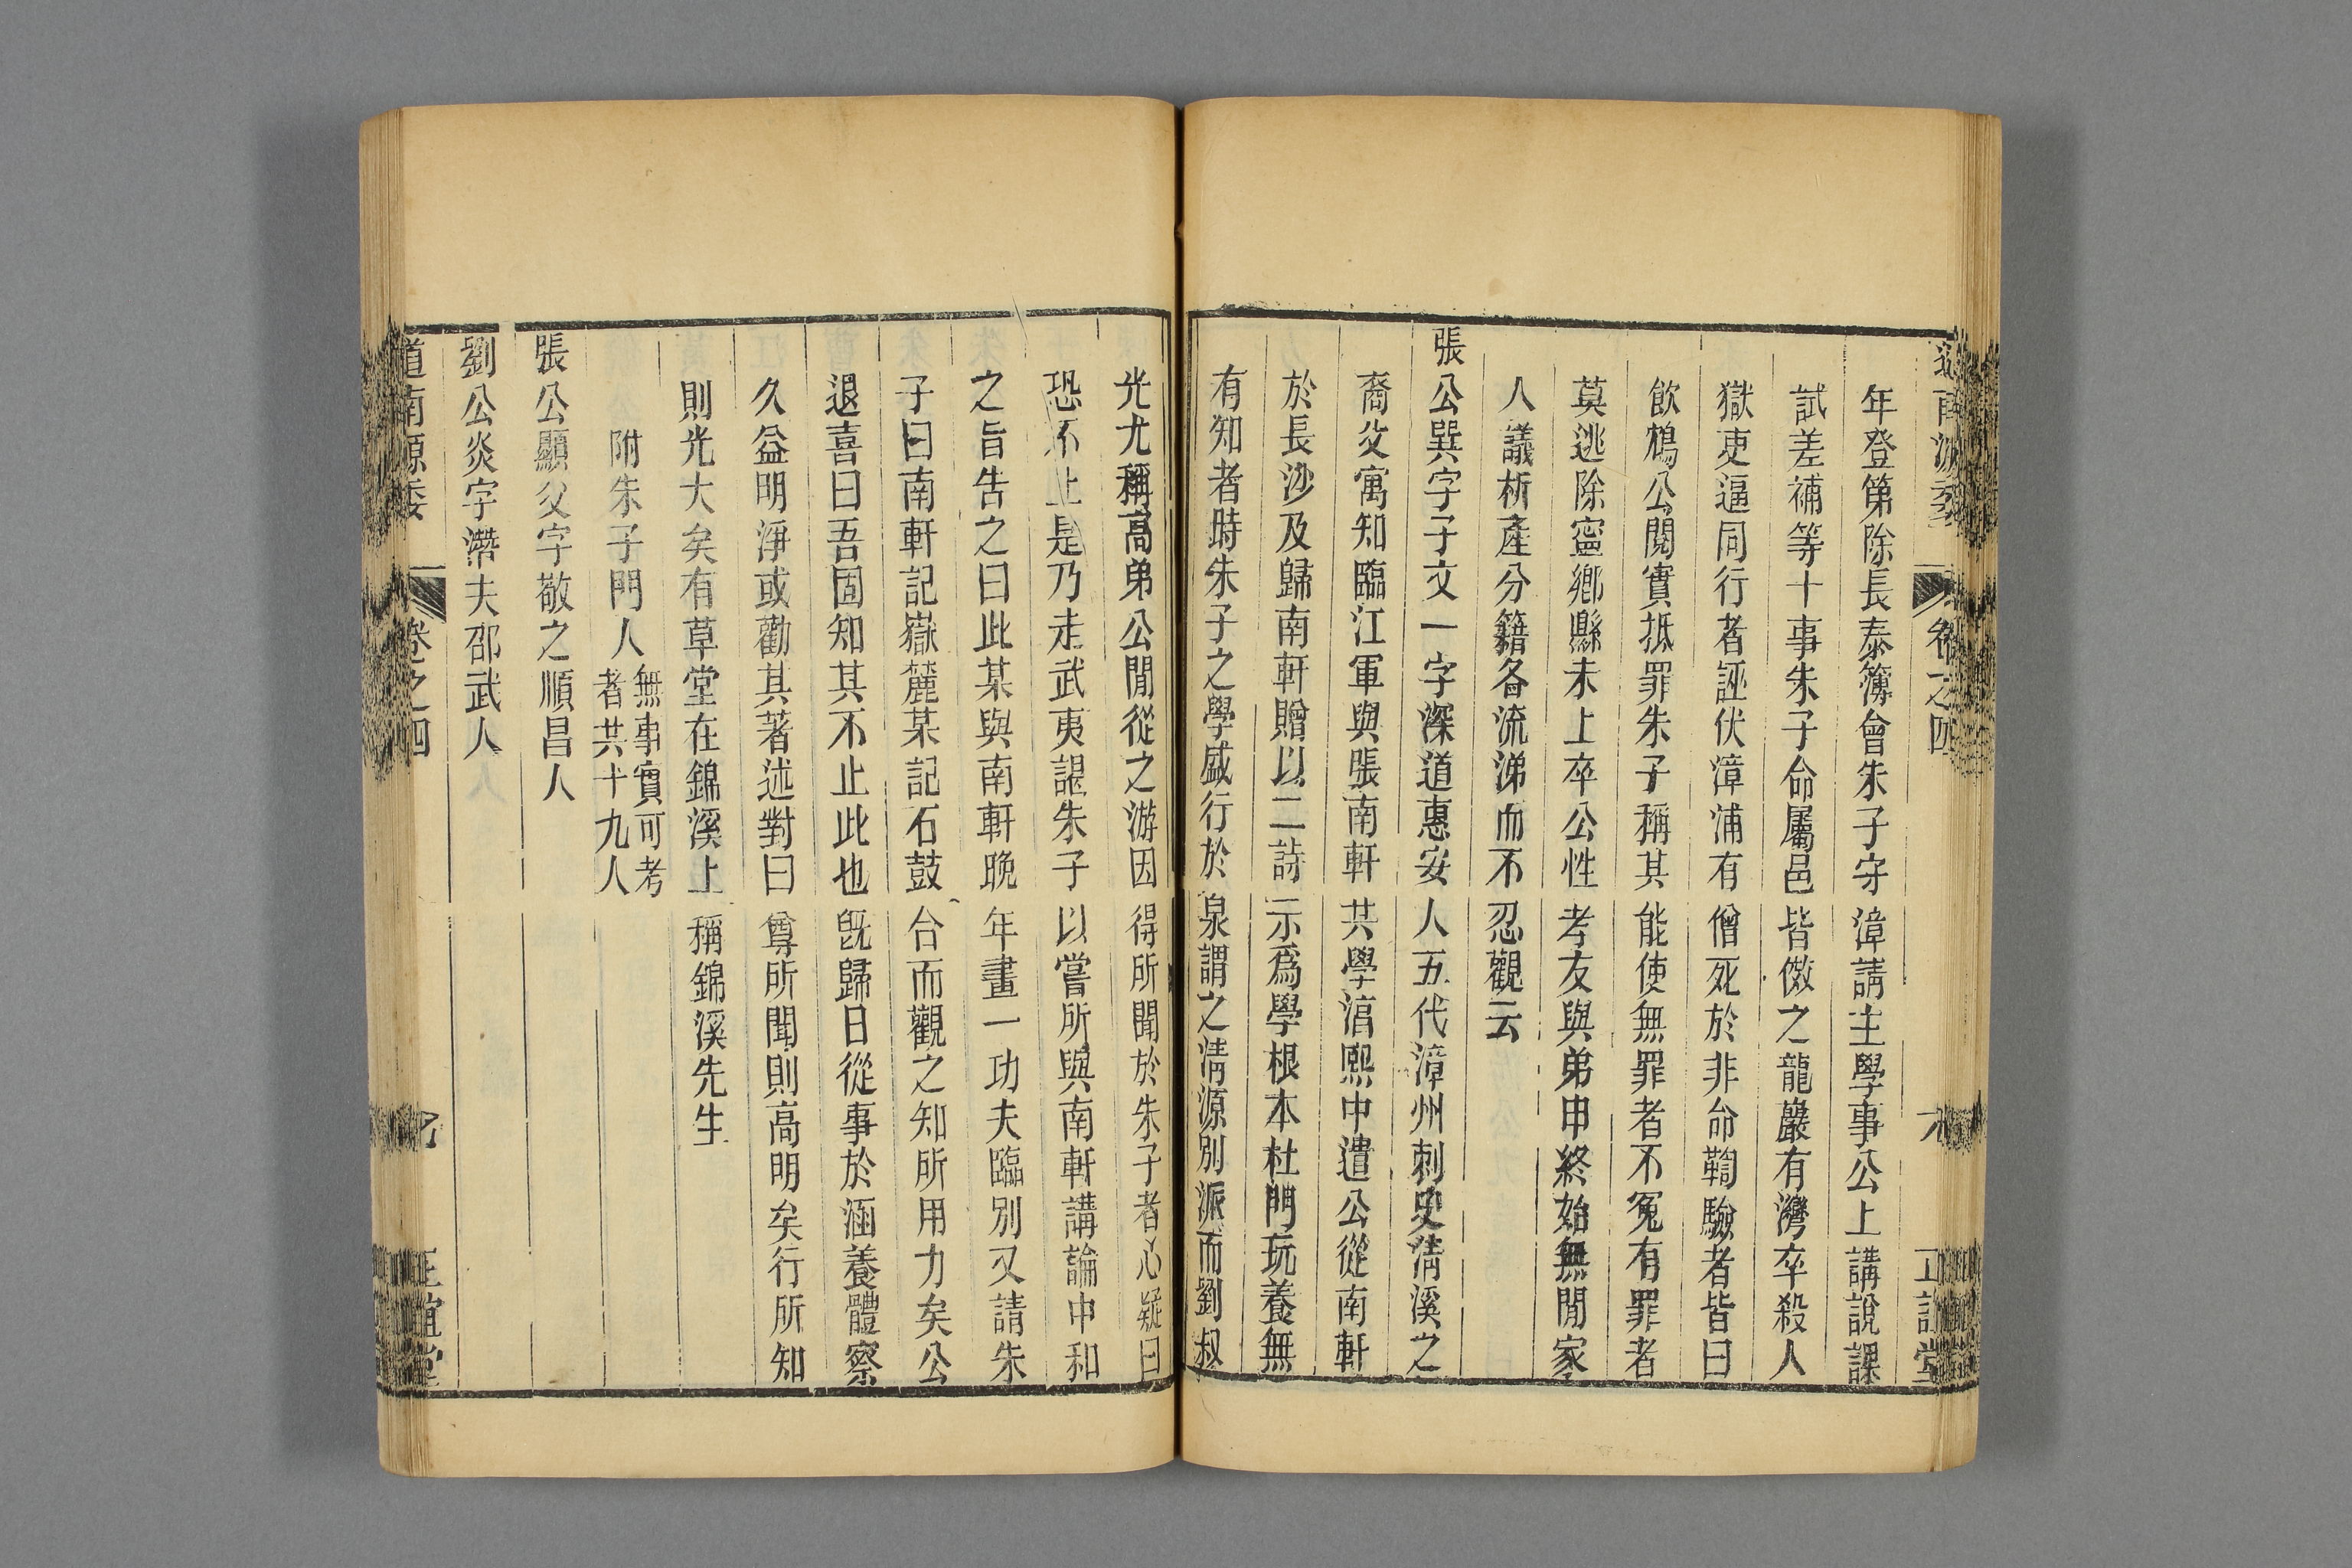 道南源委 卷之四 正誼堂
年登第除長泰簿會朱子守漳請主學事公上講說課
試差補等十事朱子命屬邑皆倣之龍巖有灣卒殺人
獄吏逼同行者誣伏漳浦有僧死於非命鞫驗者皆曰
飲鴆公閱實抵罪朱子稱其能使無罪者不冤有罪者
莫逃除寧鄉縣未上卒公性孝友與弟申終始無閒家
人議析產分籍各流涕而不忍觀云
張公巽字子文一字深道惠安人五代漳州刺史清溪之
裔父寓知臨江軍與張南軒共學淳熙中遣公從南軒
於長沙及歸南軒贈以二詩示爲學根本杜門玩養無
有知者時朱子之學盛行於泉謂之清源別派而劉叔
光尤稱高弟公閒從之游因得所聞於朱子者心疑曰
恐不止是乃走武夷謁朱子以嘗所與南軒講論中和
之旨告之曰此某與南軒晚年畫一功夫臨別又請朱
子曰南軒記嶽麓某記石鼓合而觀之知所用力矣公
退喜曰吾固知其不止此也旣歸日從事於涵養體察
久益明淨或勸其著述對曰尊所聞則高明矣行所知
則光大矣有草堂在錦溪上稱錦溪先生
附朱子門人無事實可考
者共十九人
張公顯父字敬之順昌人
劉公炎字濳夫邵武人
道南源委 卷之四 正誼堂